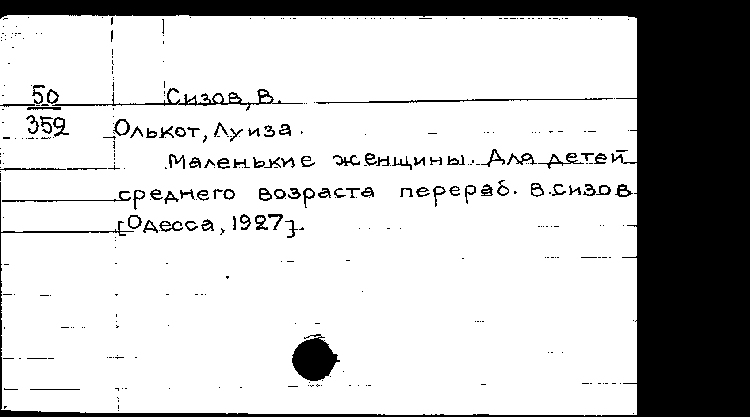 50 Сизов, В.
359 Олькот, Луиза.
Маленькие женщины. Для детей
среднего возраста перераб. В.Сизов
[Одесса, 1927].